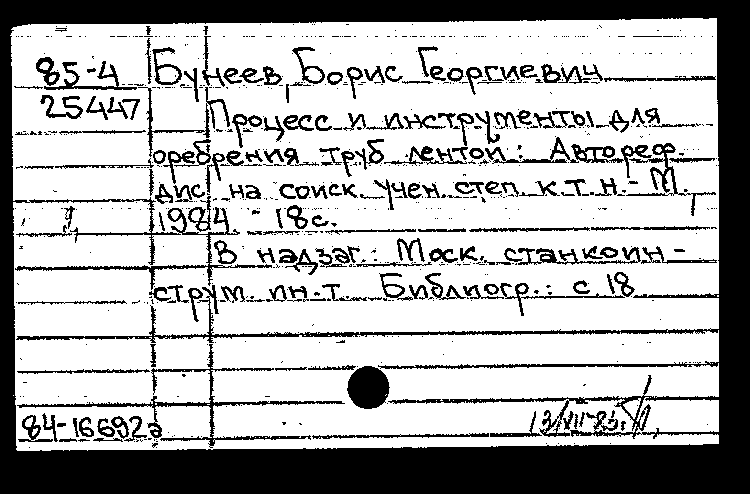 85-4 Бунеев, Борис Георгиевич
25447 Процесс и инструменты для
оребрения труб лентой: Автореф.
дис. на соиск. учен. степ. к.т.н. - М.,
1984. - 18с.
В надзаг.: Моск. станкоин-
струм. ин-т. Библиогр.: с. 18
84-16692а 13/VII-85.